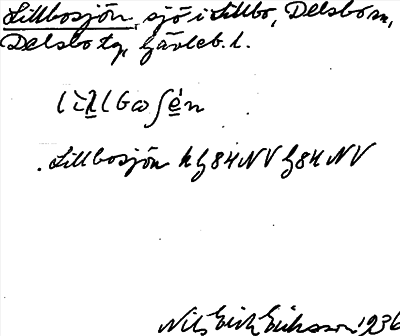 Lillbosjön, sjö i Lillbo, Delsbo sn,
Delsbo tg, Gävleb. l.
Lillbosjön h G84NV G84NV
Nils Erik Eriksson 1936